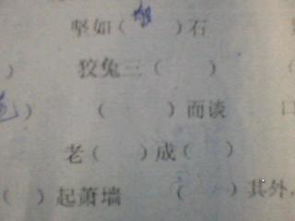 坚如（　）石
）　狡兔三（　）　（
）　（　）而谈　口
老（　）成（　）
（　）起萧墙　（　）其外